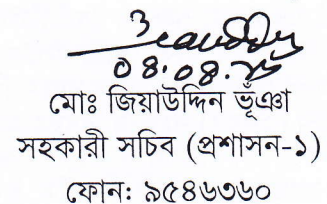 ০৪.০৪.২৫
মোঃ জিয়াউদ্দিন ভূঁঞা
সহকারী সচিব (প্রশাসন-১)
ফোন: ৯৫৪৬৩৬০